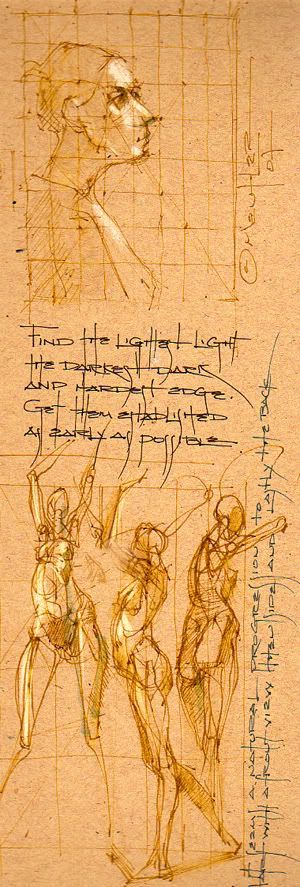 © MENTLER
FIND the LIGHTEST LIGHT
the DARKEST DARK
AND HARDEST EDGE.
GET them ESTABLISHED
AS EARLY AS POSSIBLE
It SEEMS A NATURAL PROGRESSION to
with A FRONT VIEW then SIDE AND LASTLY the BACK